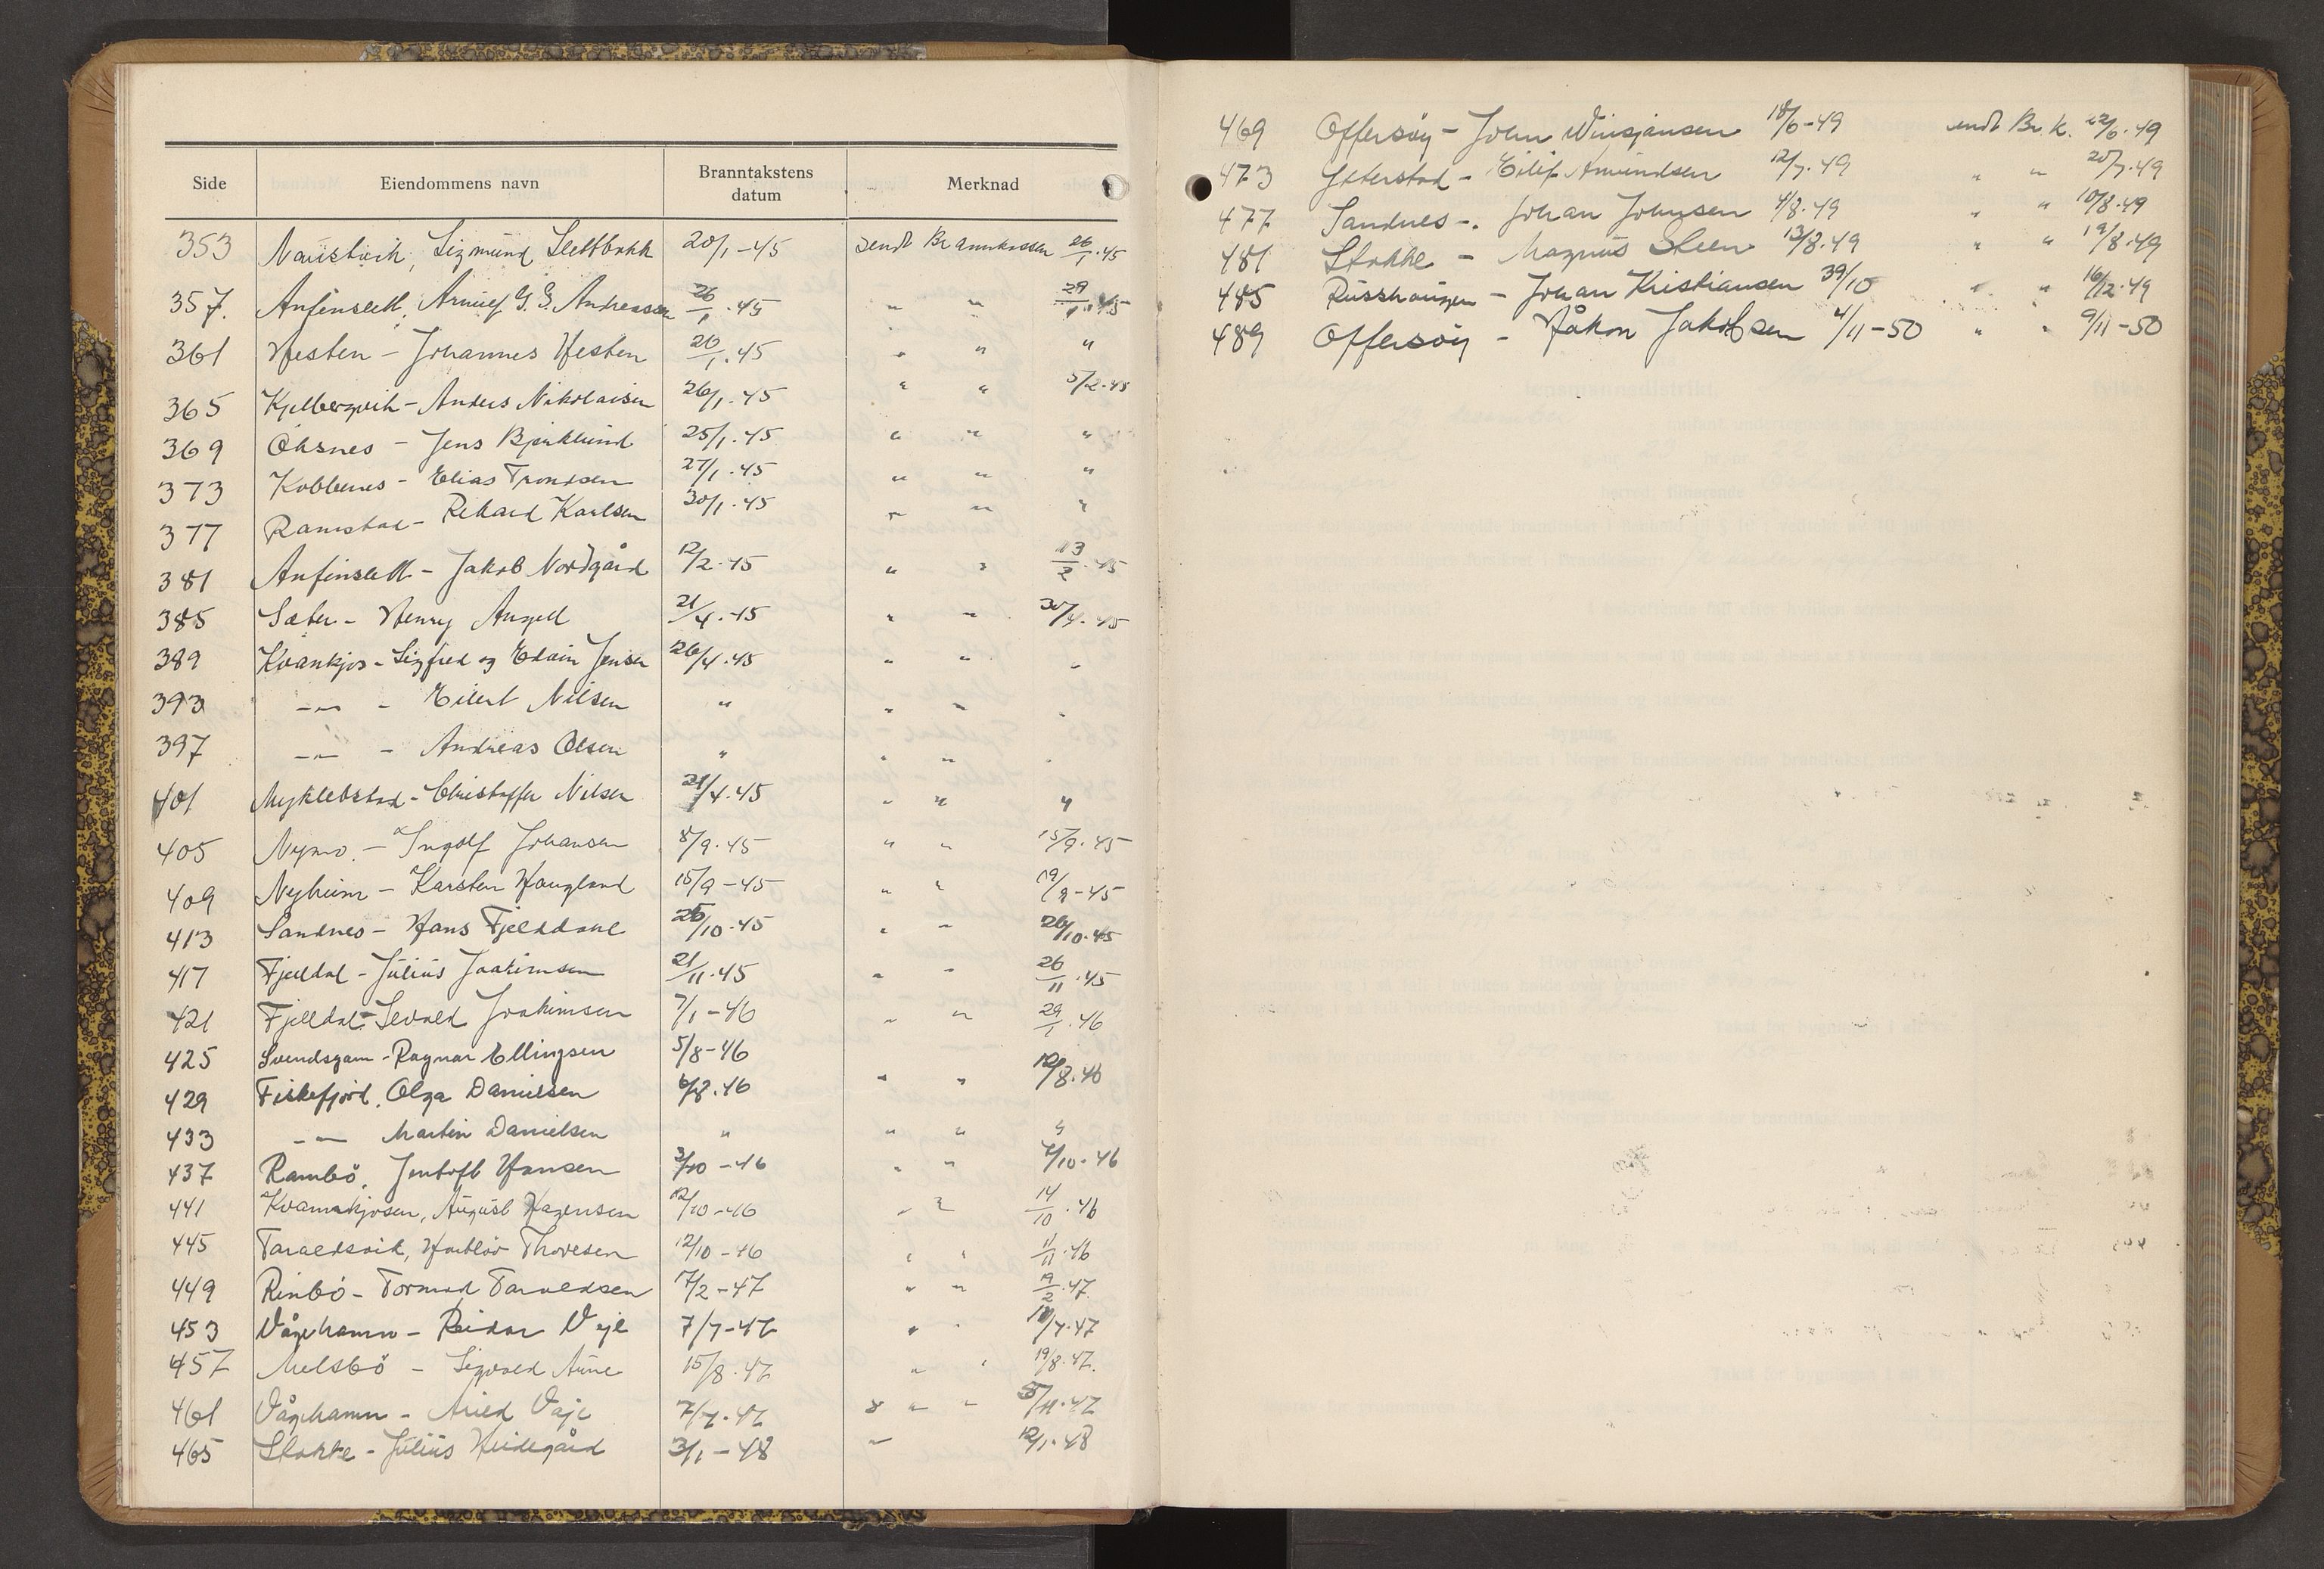 Side Eiendommens navn Branntakstens datum Merknad
353 Naustvik, Sigmund Slettbakk 20/1-45 sendt Brannkassen 26/1.45
357. Anfinslett, Arnulf G. S. Andreassen 26/1.45 " " 29/1.45
361 Hesten - Johannes Hesten 26/1.45 " " "
365 Kjelbergvik - Anders Nikolaisen 26/1.45 " " 5/2.45
369 Oksnes - Jens Bjørklund 25/1.45 " " "
373 Kobbenes - Elias Trondsen 27/1.45 " " "
377 Ramstad - Rikard Karlsen 30/1.45 " " "
381 Anfinslett - Jakob Nordgård 12/2.45 " " 13/2.45
385 Sæter - Henry Angell 21/4.45 " " 30/4.45
389 Kvankjos - Sigfred og Edvin Jensen 26/4.45 " " "
393 -"- - Eilert Nilsen " " " "
397 -"- - Andreas Olsen " " " "
401 Myklebstad - Christoffer Nilsen 21/4.45 " " "
405 Nymo - Ingolf Johansen 8/9.45 " " 15/9.45
409 Nyheim - Karsten Haugland 15/9-45 " " 19/9-45
413 Sandnes - Hans Fjelldal 25/10.45 " " 26/10.45
417 Fjelldal - Julius Joakimsen 21/11.45 " " 26/11.45
421 Fjelldal - Sevald Joakimsen 7/1-46 " " 29/1.46
425 Svendsgam - Ragnar Ellingsen 5/8-46
429 Fiskefjord, Olga Danielsen 6/8.46 " " 12/8.46
433 -"- Martin Danielsen " " " "
437 Rambö, Jentoft Hansen 3/10-46 " " 7/10.46
441 Kvannkjosen, August Hagensen 12/10-46 " " 14/10.46
445 Taraldsvik, Thoresen 12/10-46 " " 11/11.46
449 Rinbö - Tormod Taraldsen 17/2-47 " " 19/2.47
453 Vågehamn - Reidar Veje 7/7-47 " " 10/7.47
457 Melsbö - Sigvald Aune 15/8.47 " " 19/8.47.
461 Vågehamn - Arild Vaje 7/7.47 " " 5/11.47
465 Stokke - Julius Heidegård 3/1-48 " 12/1.48
469 Offersöy - John Winsjansen 18/6-49 sendt Br.k. 22/6.49
473 Ytterstad - Eilif Amundsen 12/7.49 " " 20/7.49
477 Sandnes -. Johan Johnsen 4/8.49 " " 10/8.49
481 Stokke - Magnus Steen 13/8.49 " " 19/8.49
485 Russhaugen - Johan Kristiansen 39/10 " " 16/12.49
489 Offersöy - Håkon Jakobsen 4/11-50 " " 9/11-50